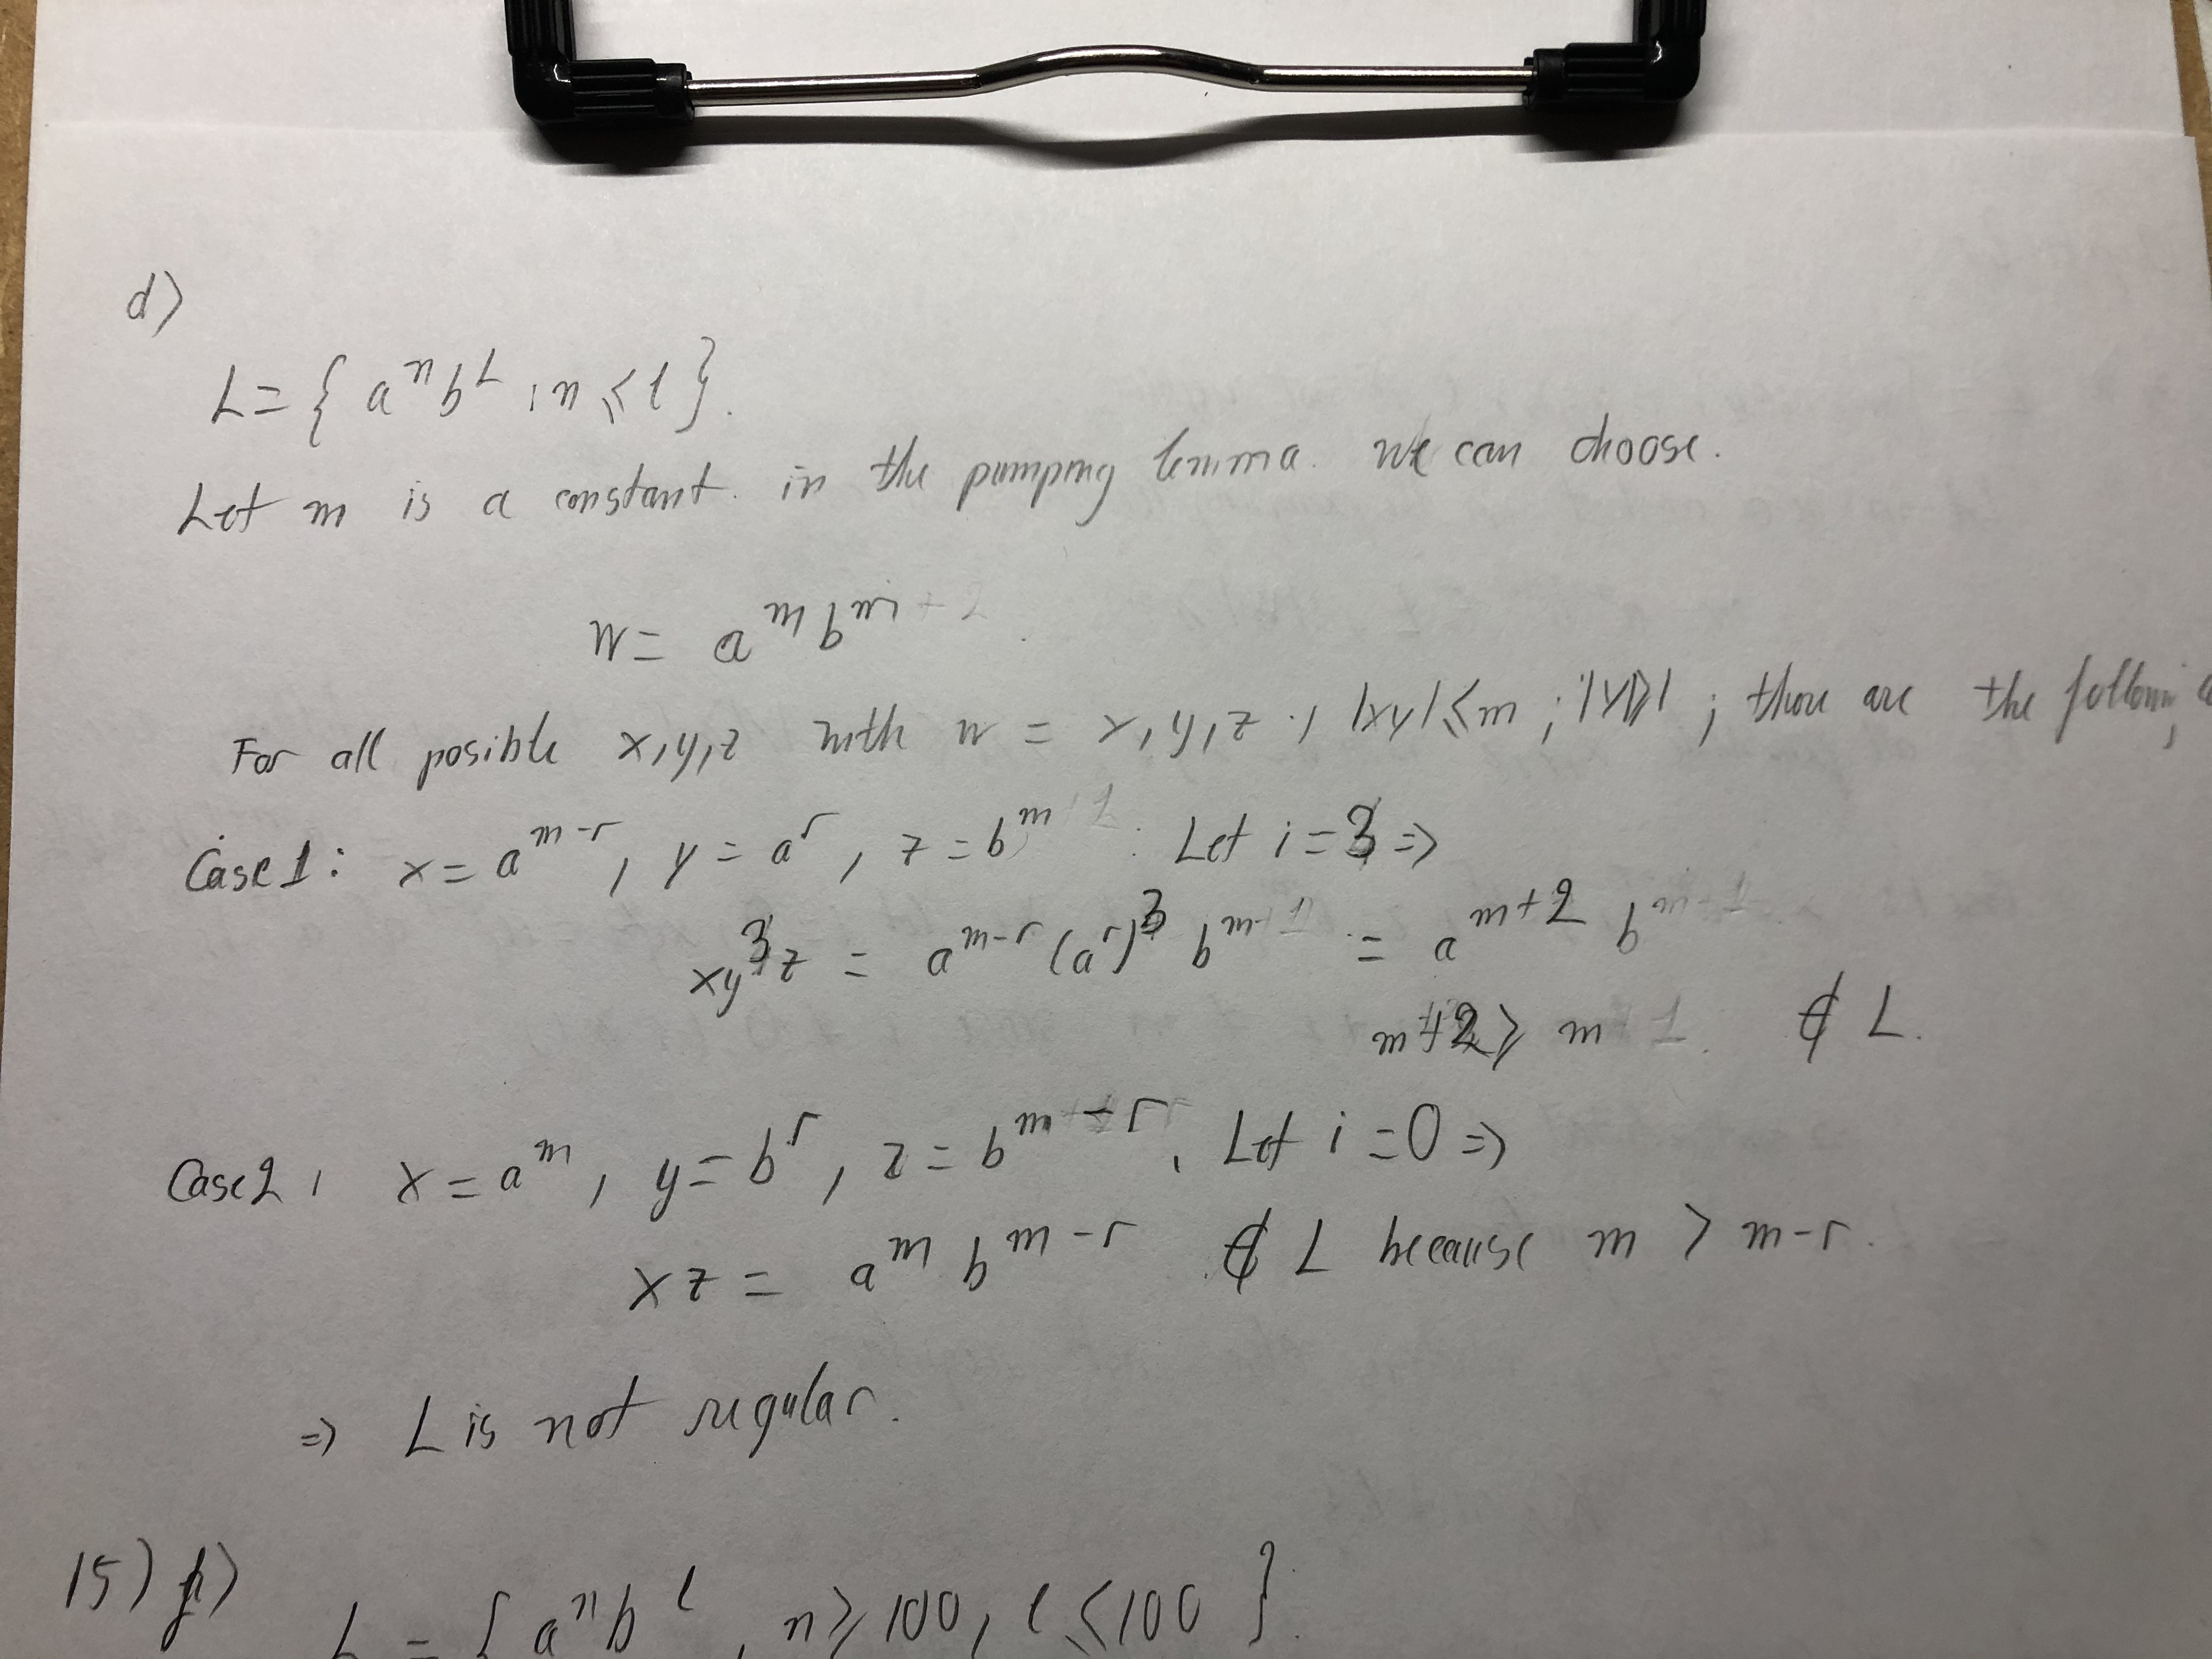 d)
L = { aⁿbᴸ : n ≤ l }.
Let m is a constant. in the pumping lemma. we can choose.
w = aᵐbᵐ
For all posible x,y,z with w = x,y,z ; |xy| ≤ m ; |y|≥1 ; there are the following
Case 1: x = aᵐ⁻ʳ, y = aʳ, z = bᵐ. Let i = 3 ⇒
xy³z = aᵐ⁻ʳ (aʳ)³ bᵐ = aᵐ⁺² bᵐ
m+2 > m ∉ L.
Case 2 : x = aᵐ, y = bʳ, z = bᵐ⁻ʳ. Let i = 0 ⇒
xz = aᵐ bᵐ⁻ʳ ∉ L because m > m-r.
⇒ L is not regular.
15)
L = { aⁿbˡ , n ≥ 100, l ≤ 100 }.